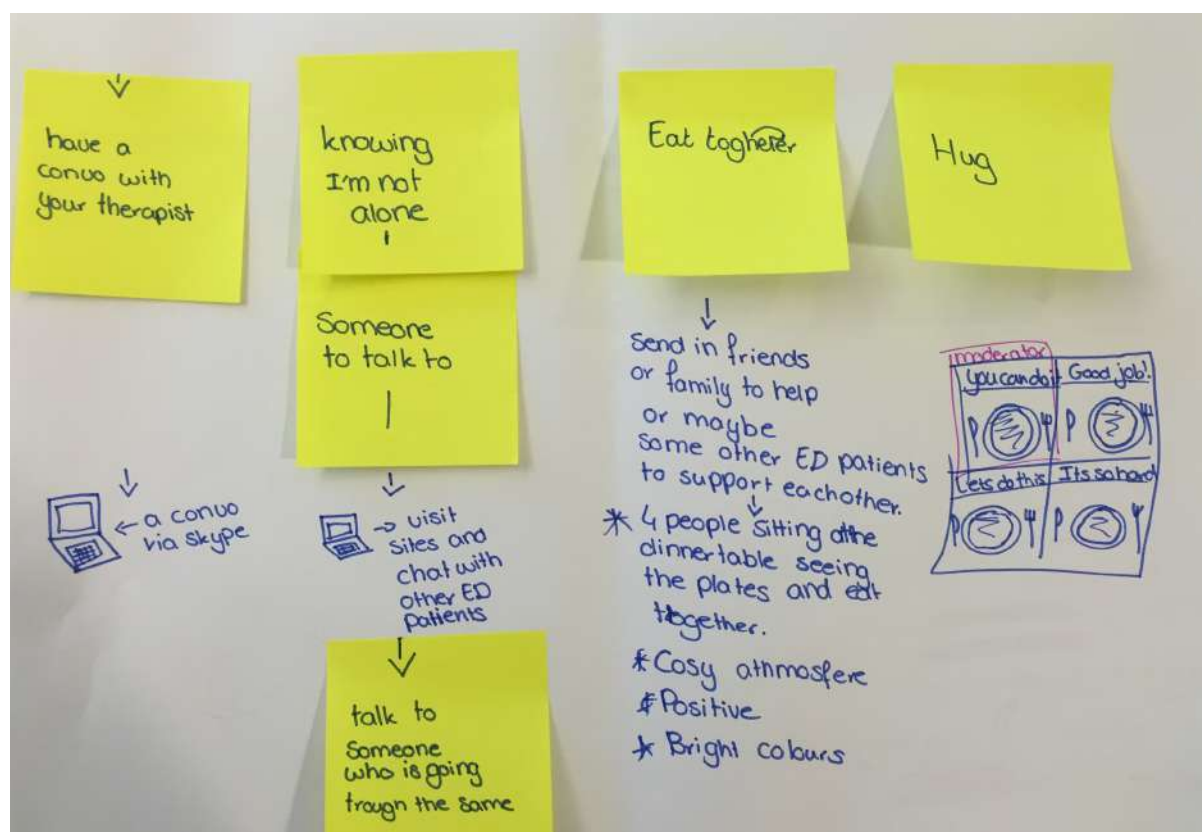 have a
convo with
your therapist
← a convo
via skype
knowing
I'm not
alone
Someone
to talk to
→ visit
sites and
chat with
other ED
patients
talk to
Someone
who is going
trough the same
Eat togheter
send in friends
or family to help
or maybe
some other ED patients
to support eachother.
* 4 people sitting at the
dinnertable seeing
the plates and eat
together.
* Cosy athmosfere
* Positive
* Bright colours
Hug
moderator
you can do it
Good job!
Lets do this
Its so hard